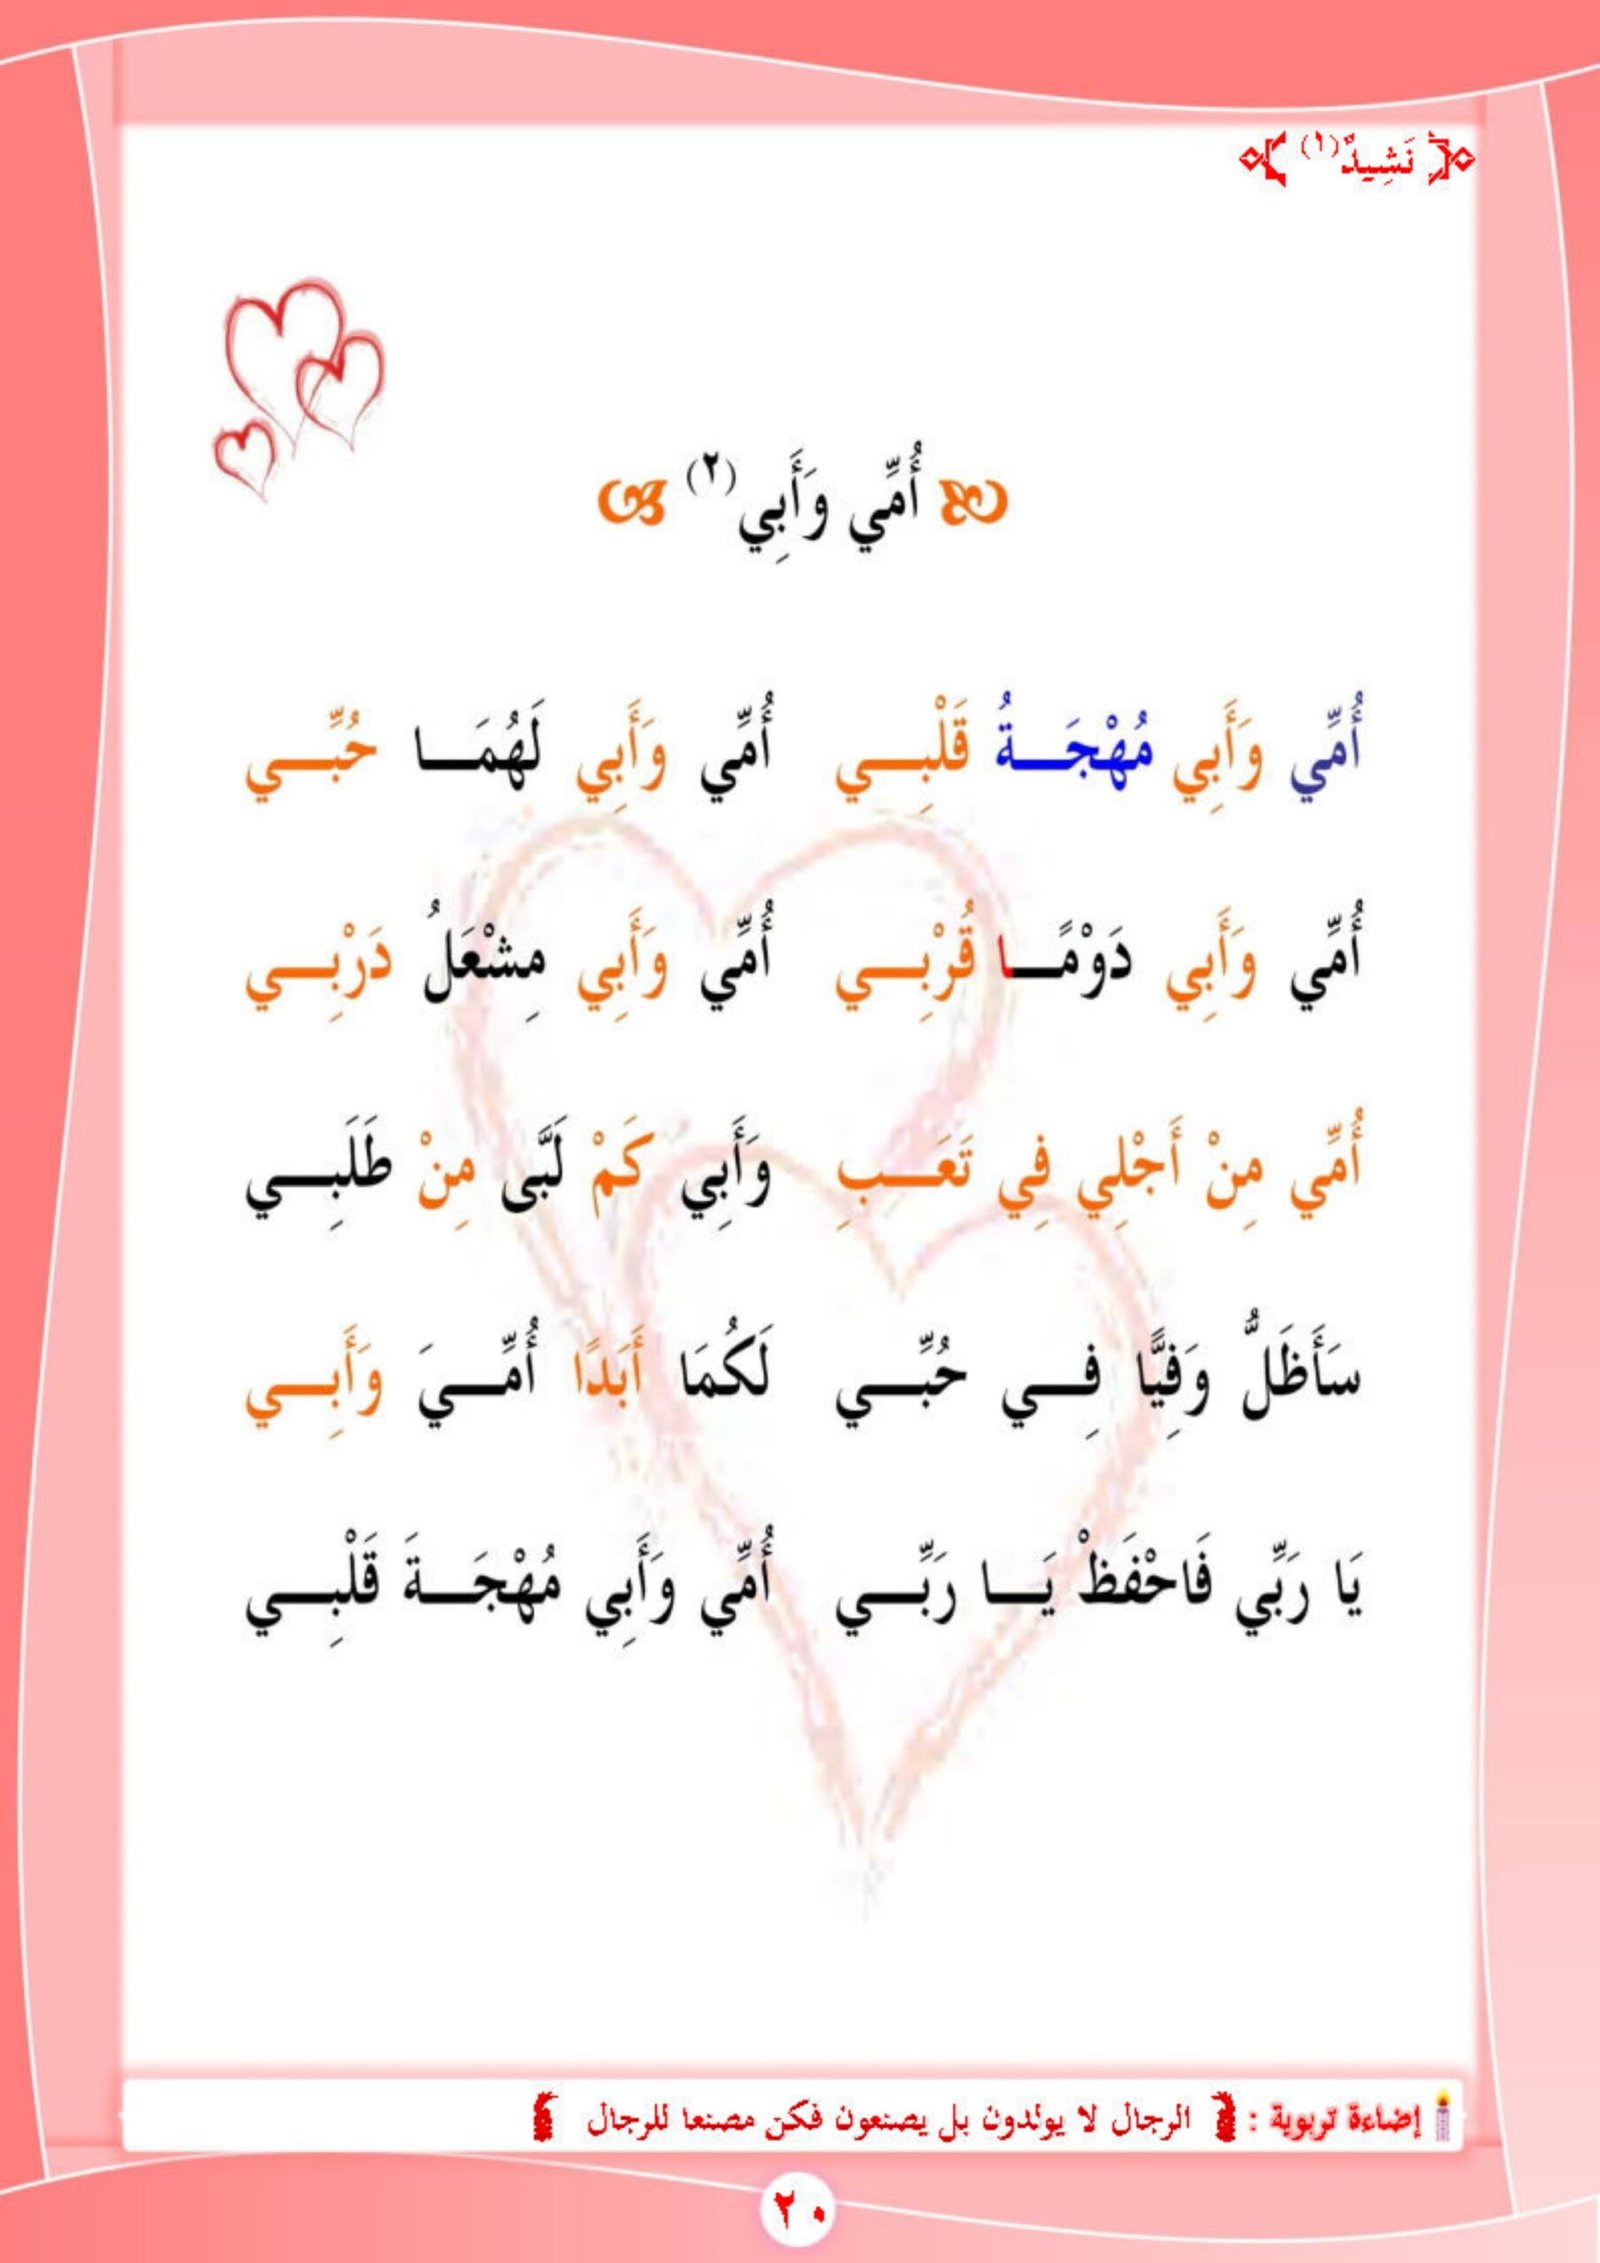 نَشِيدٌ (١)
أُمِّي وَأَبِي (٢)
أُمِّي وَأَبِي مُهْجَـــةُ قَلْبِـــي أُمِّي وَأَبِي لَهُمَـــا حُبِّـــي
أُمِّي وَأَبِي دَوْمًـــا قُرْبِـــي أُمِّي وَأَبِي مِشْعَلُ دَرْبِـــي
أُمِّي مِنْ أَجْلِي فِي تَعَـــبِ وَأَبِي كَمْ لَبَّى مِنْ طَلَبِـــي
سَأَظَلُّ وَفِيًّا فِـــي حُبِّـــي لَكُمَا أَبَدًا أُمِّـــيَ وَأَبِـــي
يَا رَبِّي فَاحْفَظْ يَـــا رَبِّـــي أُمِّي وَأَبِي مُهْجَـــةَ قَلْبِـــي
إضاءة تربوية : الرجال لا يولدون بل يصنعون فكن مصنعا للرجال
٢٠